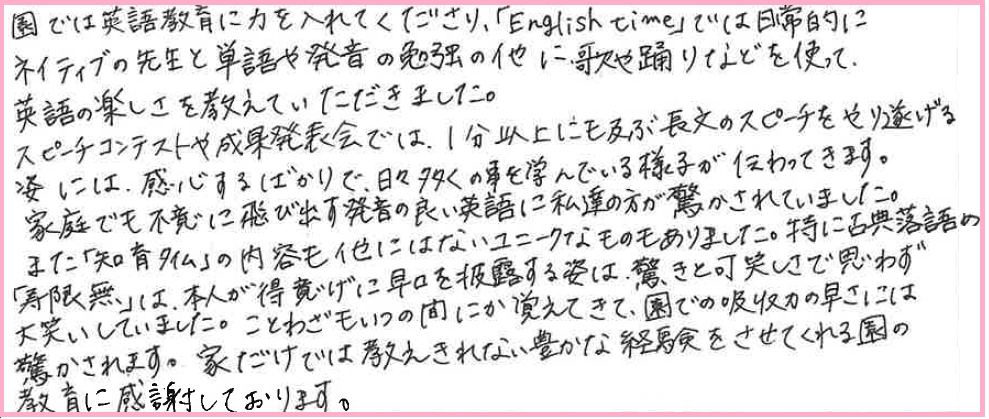 園では英語教育に力を入れてくださり、「English time」では日常的に
ネイティブの先生と単語や発音の勉強の他に歌や踊りなどを使って、
英語の楽しさを教えていただきました。
スピーチコンテストや成果発表会では、1分以上にも及ぶ長文のスピーチをやり遂げる
姿には、感心するばかりで、日々多くの事を学んでいる様子が伝わってきます。
家庭でも不意に飛び出す発音の良い英語に私達の方が驚かされていました。
また「知育タイム」の内容も他にはないユニークなものもありました。特に古典落語の
「寿限無」は、本人が得意げに早口を披露する姿は、驚きと可笑しさで思わず
大笑いしていました。ことわざもいつの間にか覚えてきて、園での吸収力の早さには
驚かされます。家だけでは教えきれない豊かな経験をさせてくれる園の
教育に感謝しております。